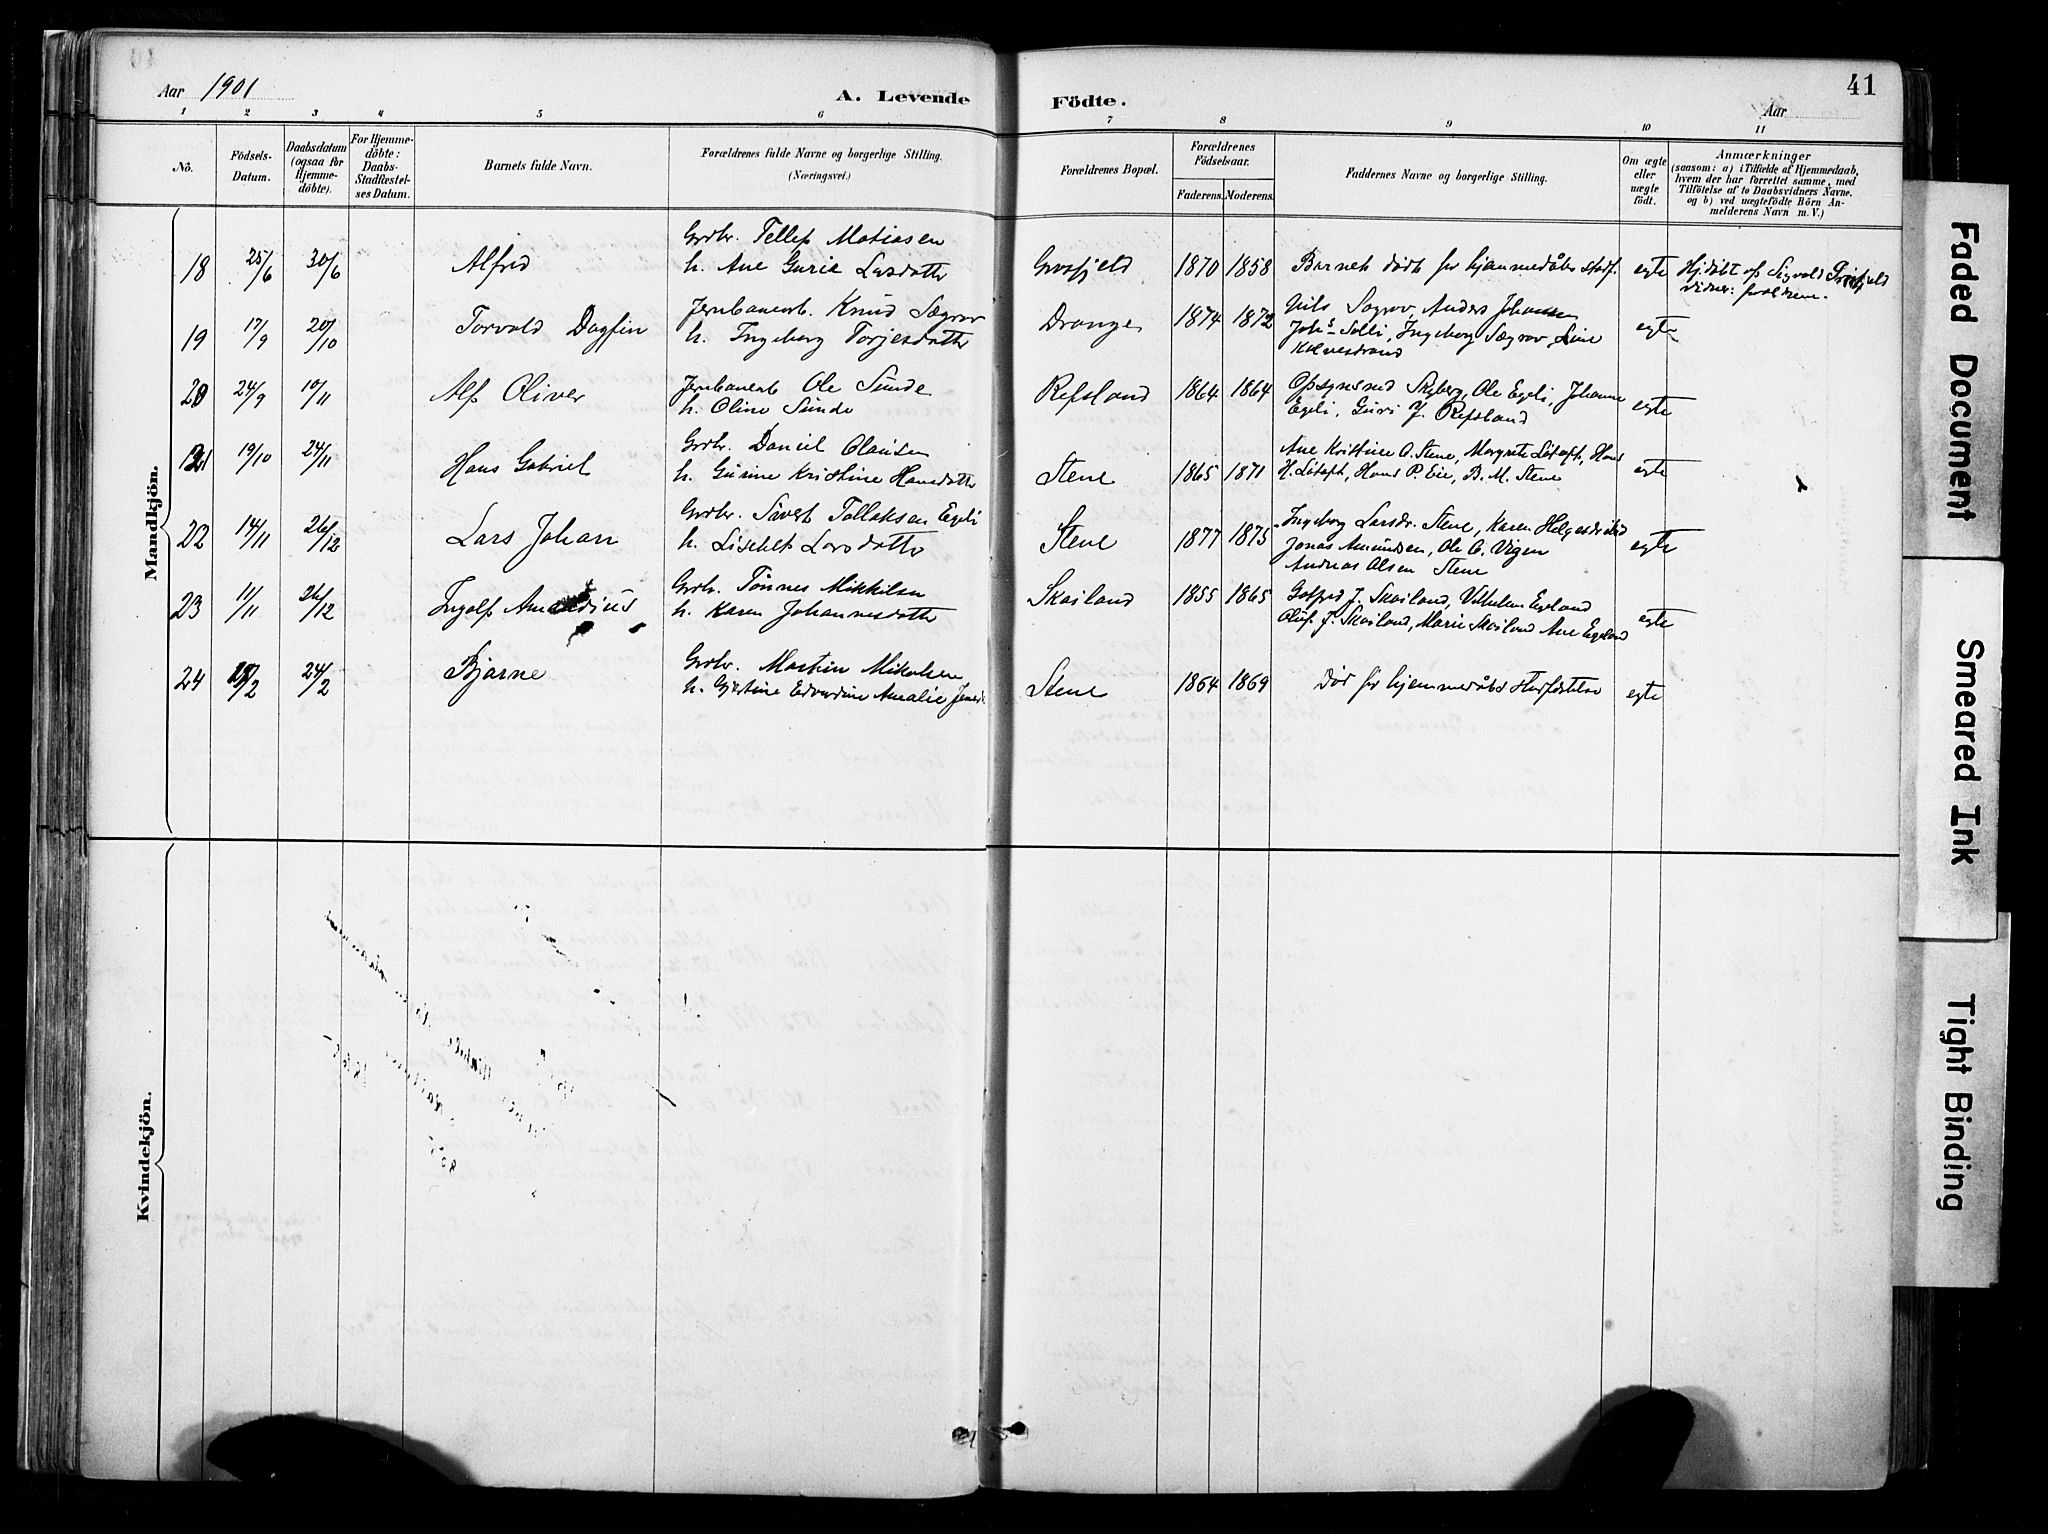 Aar 1901
A. Levende Födte.
Aar
41
1 2 3 4 5 6 7 8 9 10 11
Nô.
Födsels-Datum.
Daabsdatum (ogsaa for Hjemmedöbte).
For Hjemmedöbte: Daabs-Stadfæstelses Datum.
Barnets fulde Navn.
Forældrenes fulde Navne og borgerlige Stilling. (Næringsvei.)
Forældrenes Bopæl.
Forældrenes Födselsaar.
Faderens. Moderens.
Faddernes Navne og borgerlige Stilling.
Om ægte eller uægte födt.
Anmærkninger
(saasom: a) i Tilfælde af Hjemmedaab, hvem der har forrettet samme, med Tilföielse af to Daabsvidners Navne. og b) ved uægtefödte Börn Anmelderens Navn m. V.)
Mandkjön.
18 25/6 30/6 Alfred Grdbr. Tellef Matiasen
h. Ane Gurie Larsdatter 1870 1858 Barnet dödt før hjemmedåbs stadf. egte Hjdöbt af Sigvald
vidner: forældrene.
19 17/9 20/10 Torvald Dagfin Jernbanearb. Knud Sægrov
h. Ingeborg Torjesdatter Drange 1874 1872 Nils Sægrov, Anders Johansen
Johs Solli, Ingeborg Sægrov, Line egte
20 24/9 10/11 Alf Oliver Jernbanearb Ole Sunde
h. Oline Sunde Refsland 1864 1864 Opsynsmd Skyberg, Ole Egeli, Johanne
Egeli, Guri J. Refsland egte
21 19/10 24/11 Hans Gabriel Grdbr. Daniel Olausen
h. Gurine Kristine Hansdatter Stene 1865 1871 Ane Kristine O. Stene, Margrete Lötoft, Hans
H. Lötoft, Hans P. Eie, B. M. Stene egte
22 14/11 26/12 Lars Johan Grdbr. Sivert Tollaksen Egeli
h. Lisebet Larsdatter Stene 1877 1875 Ingeborg Larsdr. Stene, Karen
Jonas Amundsen, Ole C. Vigen
Andreas Olsen Stene egte
23 11/11 26/12 Ingolf Grdbr. Tönnes Mikkilsen
h. Karen Johannesdatter Skailand 1855 1865 Gotfred J. Skailand, Vilhelm Egeland
Oluf J. Skailand, Marie Skailand Ane Egeland egte
24 24/2 Bjarne Grdbr. Martin Mikalsen
h. Gjertine Edvardine Amalie Stene 1864 1869 Död før hjemmedåbs stadfæstelse egte
Kvindekjön.
Faded Document
Smeared Ink
Tight Binding